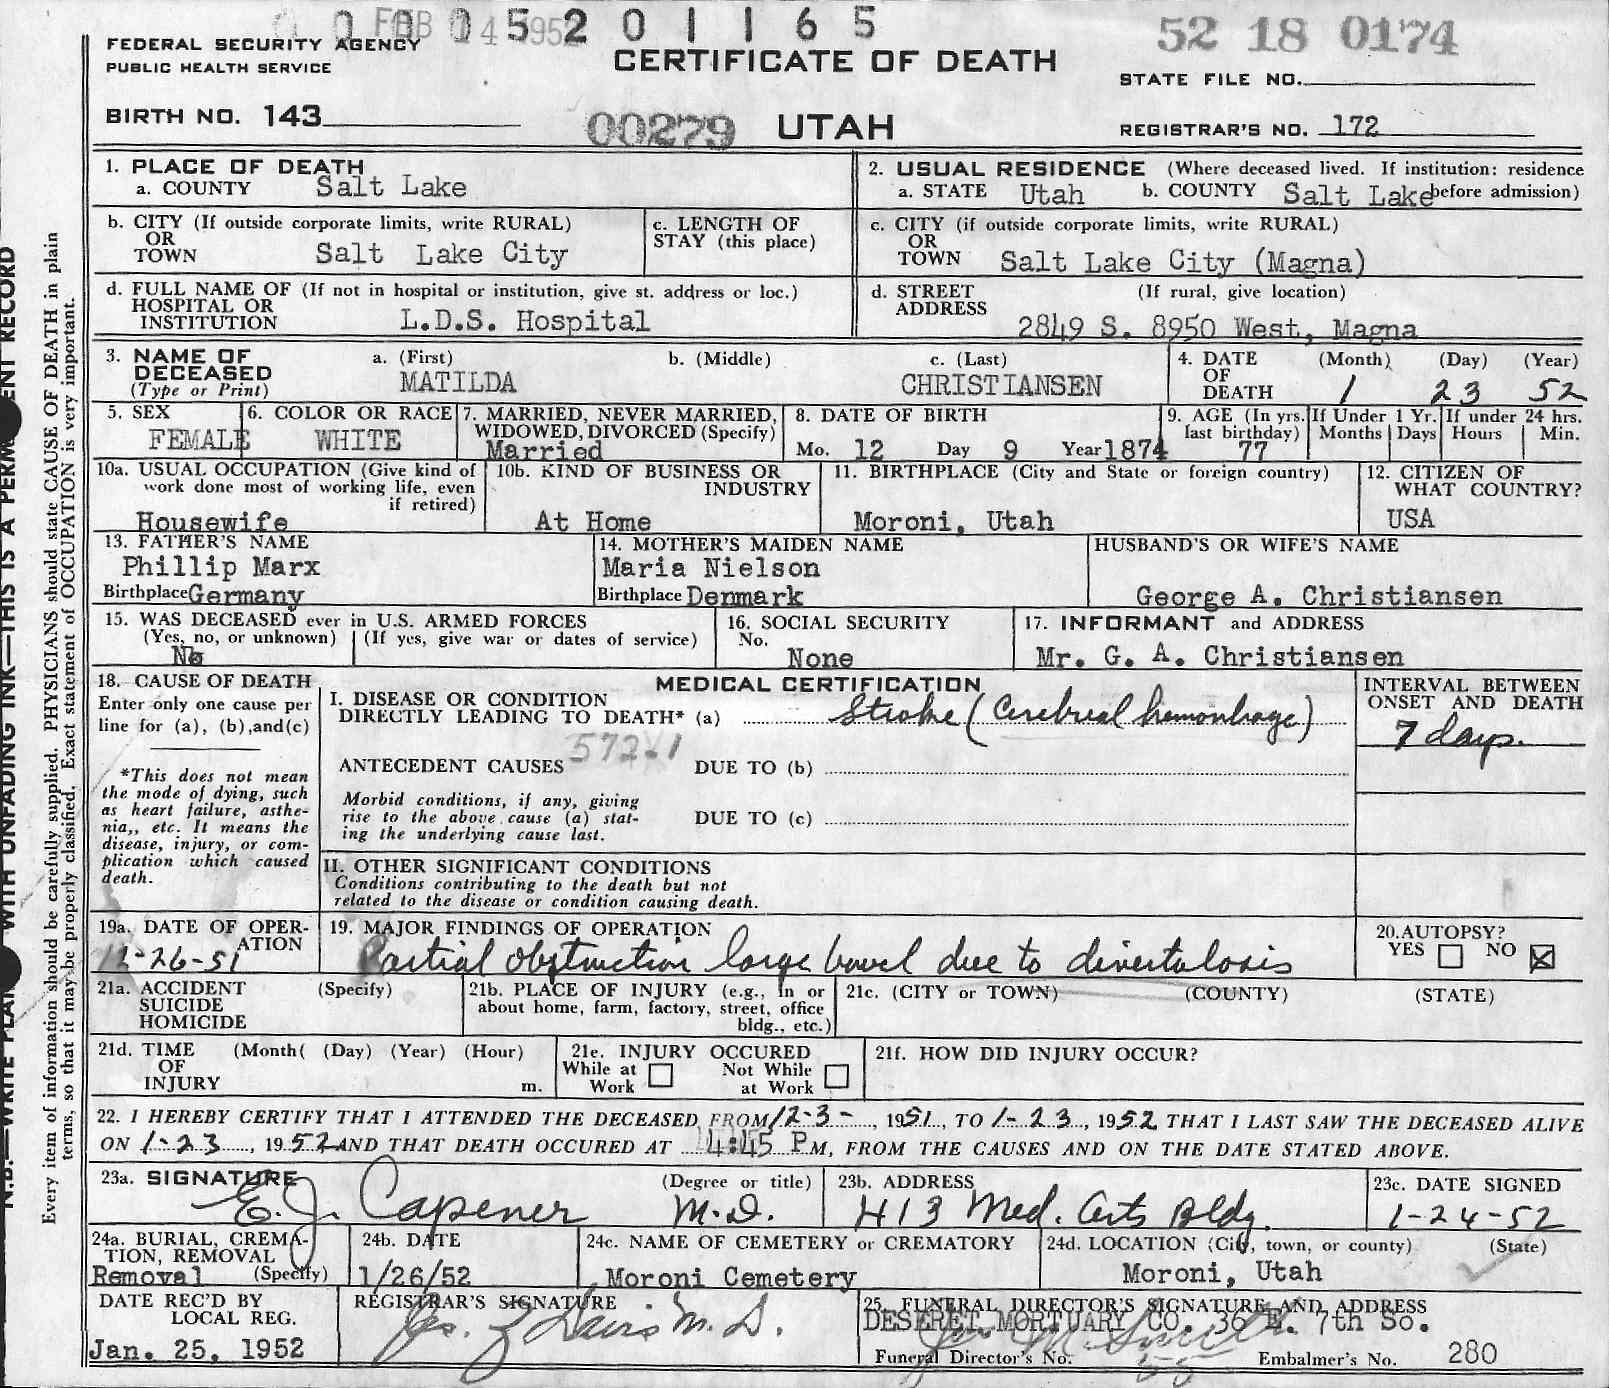 FEB 14 1952
0 0 0 5 2 0 1 1 6 5
52 18 0174
FEDERAL SECURITY AGENCY
PUBLIC HEALTH SERVICE
CERTIFICATE OF DEATH
STATE FILE NO.
BIRTH NO. 143
00279 UTAH
REGISTRAR'S NO. 172
1. PLACE OF DEATH
a. COUNTY Salt Lake
2. USUAL RESIDENCE (Where deceased lived. If institution: residence
a. STATE Utah b. COUNTY Salt Lake before admission)
b. CITY (If outside corporate limits, write RURAL)
OR
TOWN Salt Lake City
c. LENGTH OF
STAY (this place)
c. CITY (if outside corporate limits, write RURAL)
OR
TOWN Salt Lake City (Magna)
d. FULL NAME OF (If not in hospital or institution, give st. address or loc.)
HOSPITAL OR
INSTITUTION L.D.S. Hospital
d. STREET (If rural, give location)
ADDRESS
2849 S. 8950 West, Magna
3. NAME OF a. (First) b. (Middle) c. (Last)
DECEASED
(Type or Print) MATILDA CHRISTIANSEN
4. DATE (Month) (Day) (Year)
OF
DEATH 1 23 52
5. SEX
FEMALE
6. COLOR OR RACE
WHITE
7. MARRIED, NEVER MARRIED,
WIDOWED, DIVORCED (Specify)
Married
8. DATE OF BIRTH
Mo. 12 Day 9 Year 1874
9. AGE (In yrs.
last birthday)
77
If Under 1 Yr.
Months Days
If under 24 hrs.
Hours Min.
10a. USUAL OCCUPATION (Give kind of
work done most of working life, even
if retired)
Housewife
10b. KIND OF BUSINESS OR
INDUSTRY
At Home
11. BIRTHPLACE (City and State or foreign country)
Moroni, Utah
12. CITIZEN OF
WHAT COUNTRY?
USA
13. FATHER'S NAME
Phillip Marx
Birthplace Germany
14. MOTHER'S MAIDEN NAME
Maria Nielson
Birthplace Denmark
HUSBAND'S OR WIFE'S NAME
George A. Christiansen
15. WAS DECEASED ever in U.S. ARMED FORCES
(Yes, no, or unknown) (If yes, give war or dates of service)
No
16. SOCIAL SECURITY
No.
None
17. INFORMANT and ADDRESS
Mr. G. A. Christiansen
18. CAUSE OF DEATH
Enter only one cause per
line for (a), (b),and(c)
*This does not mean
the mode of dying, such
as heart failure, asthe-
nia,, etc. It means the
disease, injury, or com-
plication which caused
death.
MEDICAL CERTIFICATION
I. DISEASE OR CONDITION
DIRECTLY LEADING TO DEATH* (a) Stroke (Cerebrial hemorrhage)
572.1
ANTECEDENT CAUSES DUE TO (b)
Morbid conditions, if any, giving
rise to the above cause (a) stat-
ing the underlying cause last.
DUE TO (c)
II. OTHER SIGNIFICANT CONDITIONS
Conditions contributing to the death but not
related to the disease or condition causing death.
INTERVAL BETWEEN
ONSET AND DEATH
7 days.
19a. DATE OF OPER-
ATION
12-26-51
19. MAJOR FINDINGS OF OPERATION
Partial obstruction large bowel due to divertulosis
20. AUTOPSY?
YES NO
21a. ACCIDENT (Specify)
SUICIDE
HOMICIDE
21b. PLACE OF INJURY (e.g., in or
about home, farm, factory, street, office
bldg., etc.)
21c. (CITY or TOWN) (COUNTY) (STATE)
21d. TIME (Month( (Day) (Year) (Hour)
OF
INJURY m.
21e. INJURY OCCURED
While at Not While
Work at Work
21f. HOW DID INJURY OCCUR?
22. I HEREBY CERTIFY THAT I ATTENDED THE DECEASED FROM 12-3-, 1951, TO 1-23, 1952 THAT I LAST SAW THE DECEASED ALIVE
ON 1-23, 1952 AND THAT DEATH OCCURED AT 4:45 PM, FROM THE CAUSES AND ON THE DATE STATED ABOVE.
23a. SIGNATURE (Degree or title)
E. J. Capener M.D.
23b. ADDRESS
413 Med. Arts Bldg.
23c. DATE SIGNED
1-24-52
24a. BURIAL, CREMA-
TION, REMOVAL
Removal (Specify)
24b. DATE
1/26/52
24c. NAME OF CEMETERY or CREMATORY
Moroni Cemetery
24d. LOCATION (City, town, or county) (State)
Moroni, Utah
DATE REC'D BY
LOCAL REG.
Jan. 25, 1952
REGISTRAR'S SIGNATURE
Davis M.D.
25. FUNERAL DIRECTOR'S SIGNATURE AND ADDRESS
DESERET MORTUARY CO. 36 E. 7th So.
Funeral Director's No. Embalmer's No. 280
N.B.—WRITE PLAINLY WITH UNFADING INK—THIS IS A PERMANENT RECORD
Every item of information should be carefully supplied. PHYSICIANS should state CAUSE OF DEATH in plain
terms, so that it may be properly classified. Exact statement of OCCUPATION is very important.